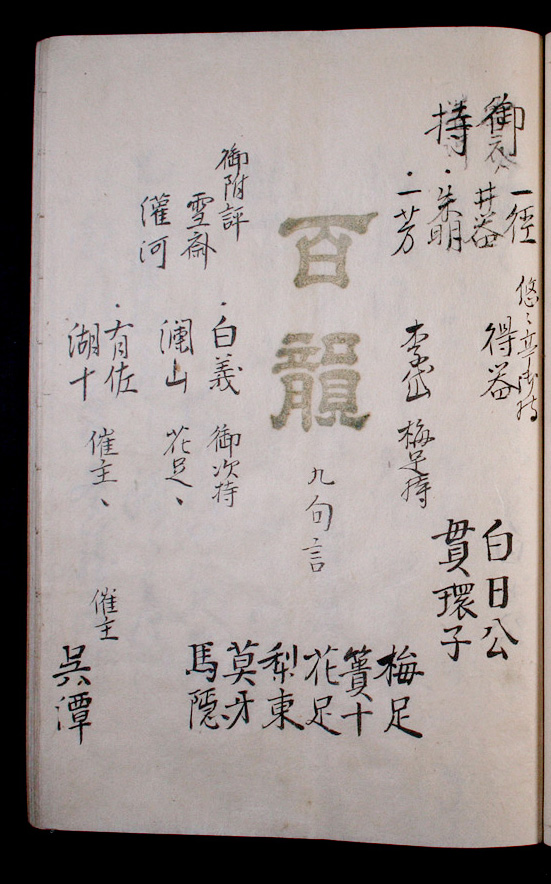 御
持
一徑
井器
・朱明
・一芳
得器
李岱
梅足持
白日公
貫環子
百韻
九句言
梅足
簀十
花足
梨東
莫牙
馬隠
御附評
雪斎
灌河
・白義
御次持
瀾山
花足、
・有佐
湖十
催主、
催主
呉潭